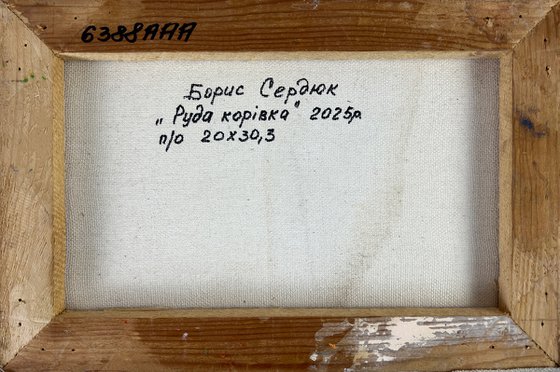 6388AAA
Борис Сердюк
„Руда корівка" 2025р.
п/о 20х30,3